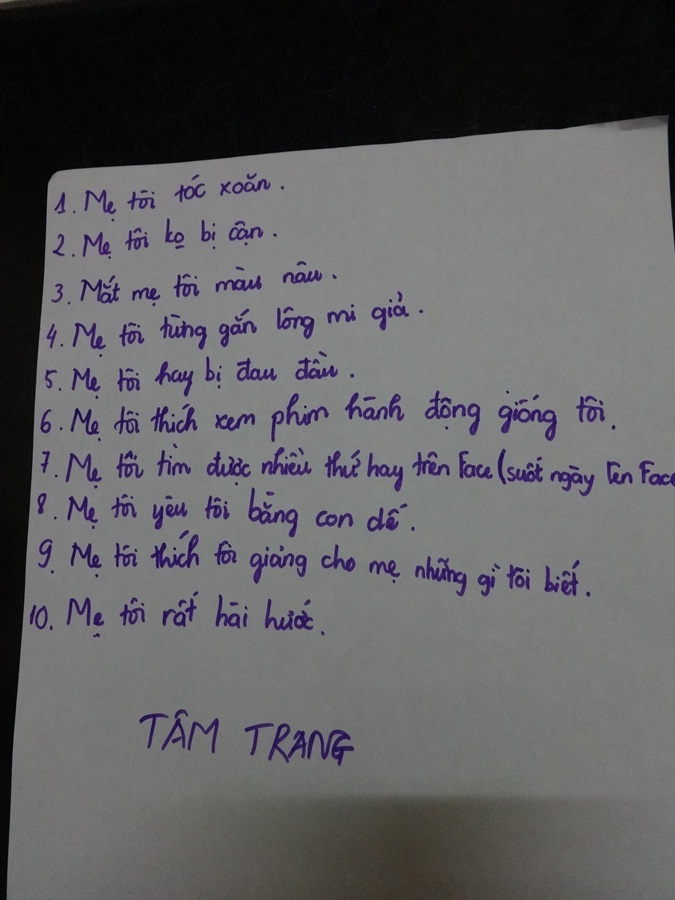 1. Mẹ tôi tóc xoăn.
2. Mẹ tôi ko bị cận.
3. Mắt mẹ tôi màu nâu.
4. Mẹ tôi từng gắn lông mi giả.
5. Mẹ tôi hay bị đau đầu.
6. Mẹ tôi thích xem phim hành động giống tôi.
7. Mẹ tôi tìm được nhiều thứ hay trên Face (suốt ngày lên Face
8. Mẹ tôi yêu tôi bằng con dế.
9. Mẹ tôi thích tôi giảng cho mẹ những gì tôi biết.
10. Mẹ tôi rất hài hước.
TÂM TRANG